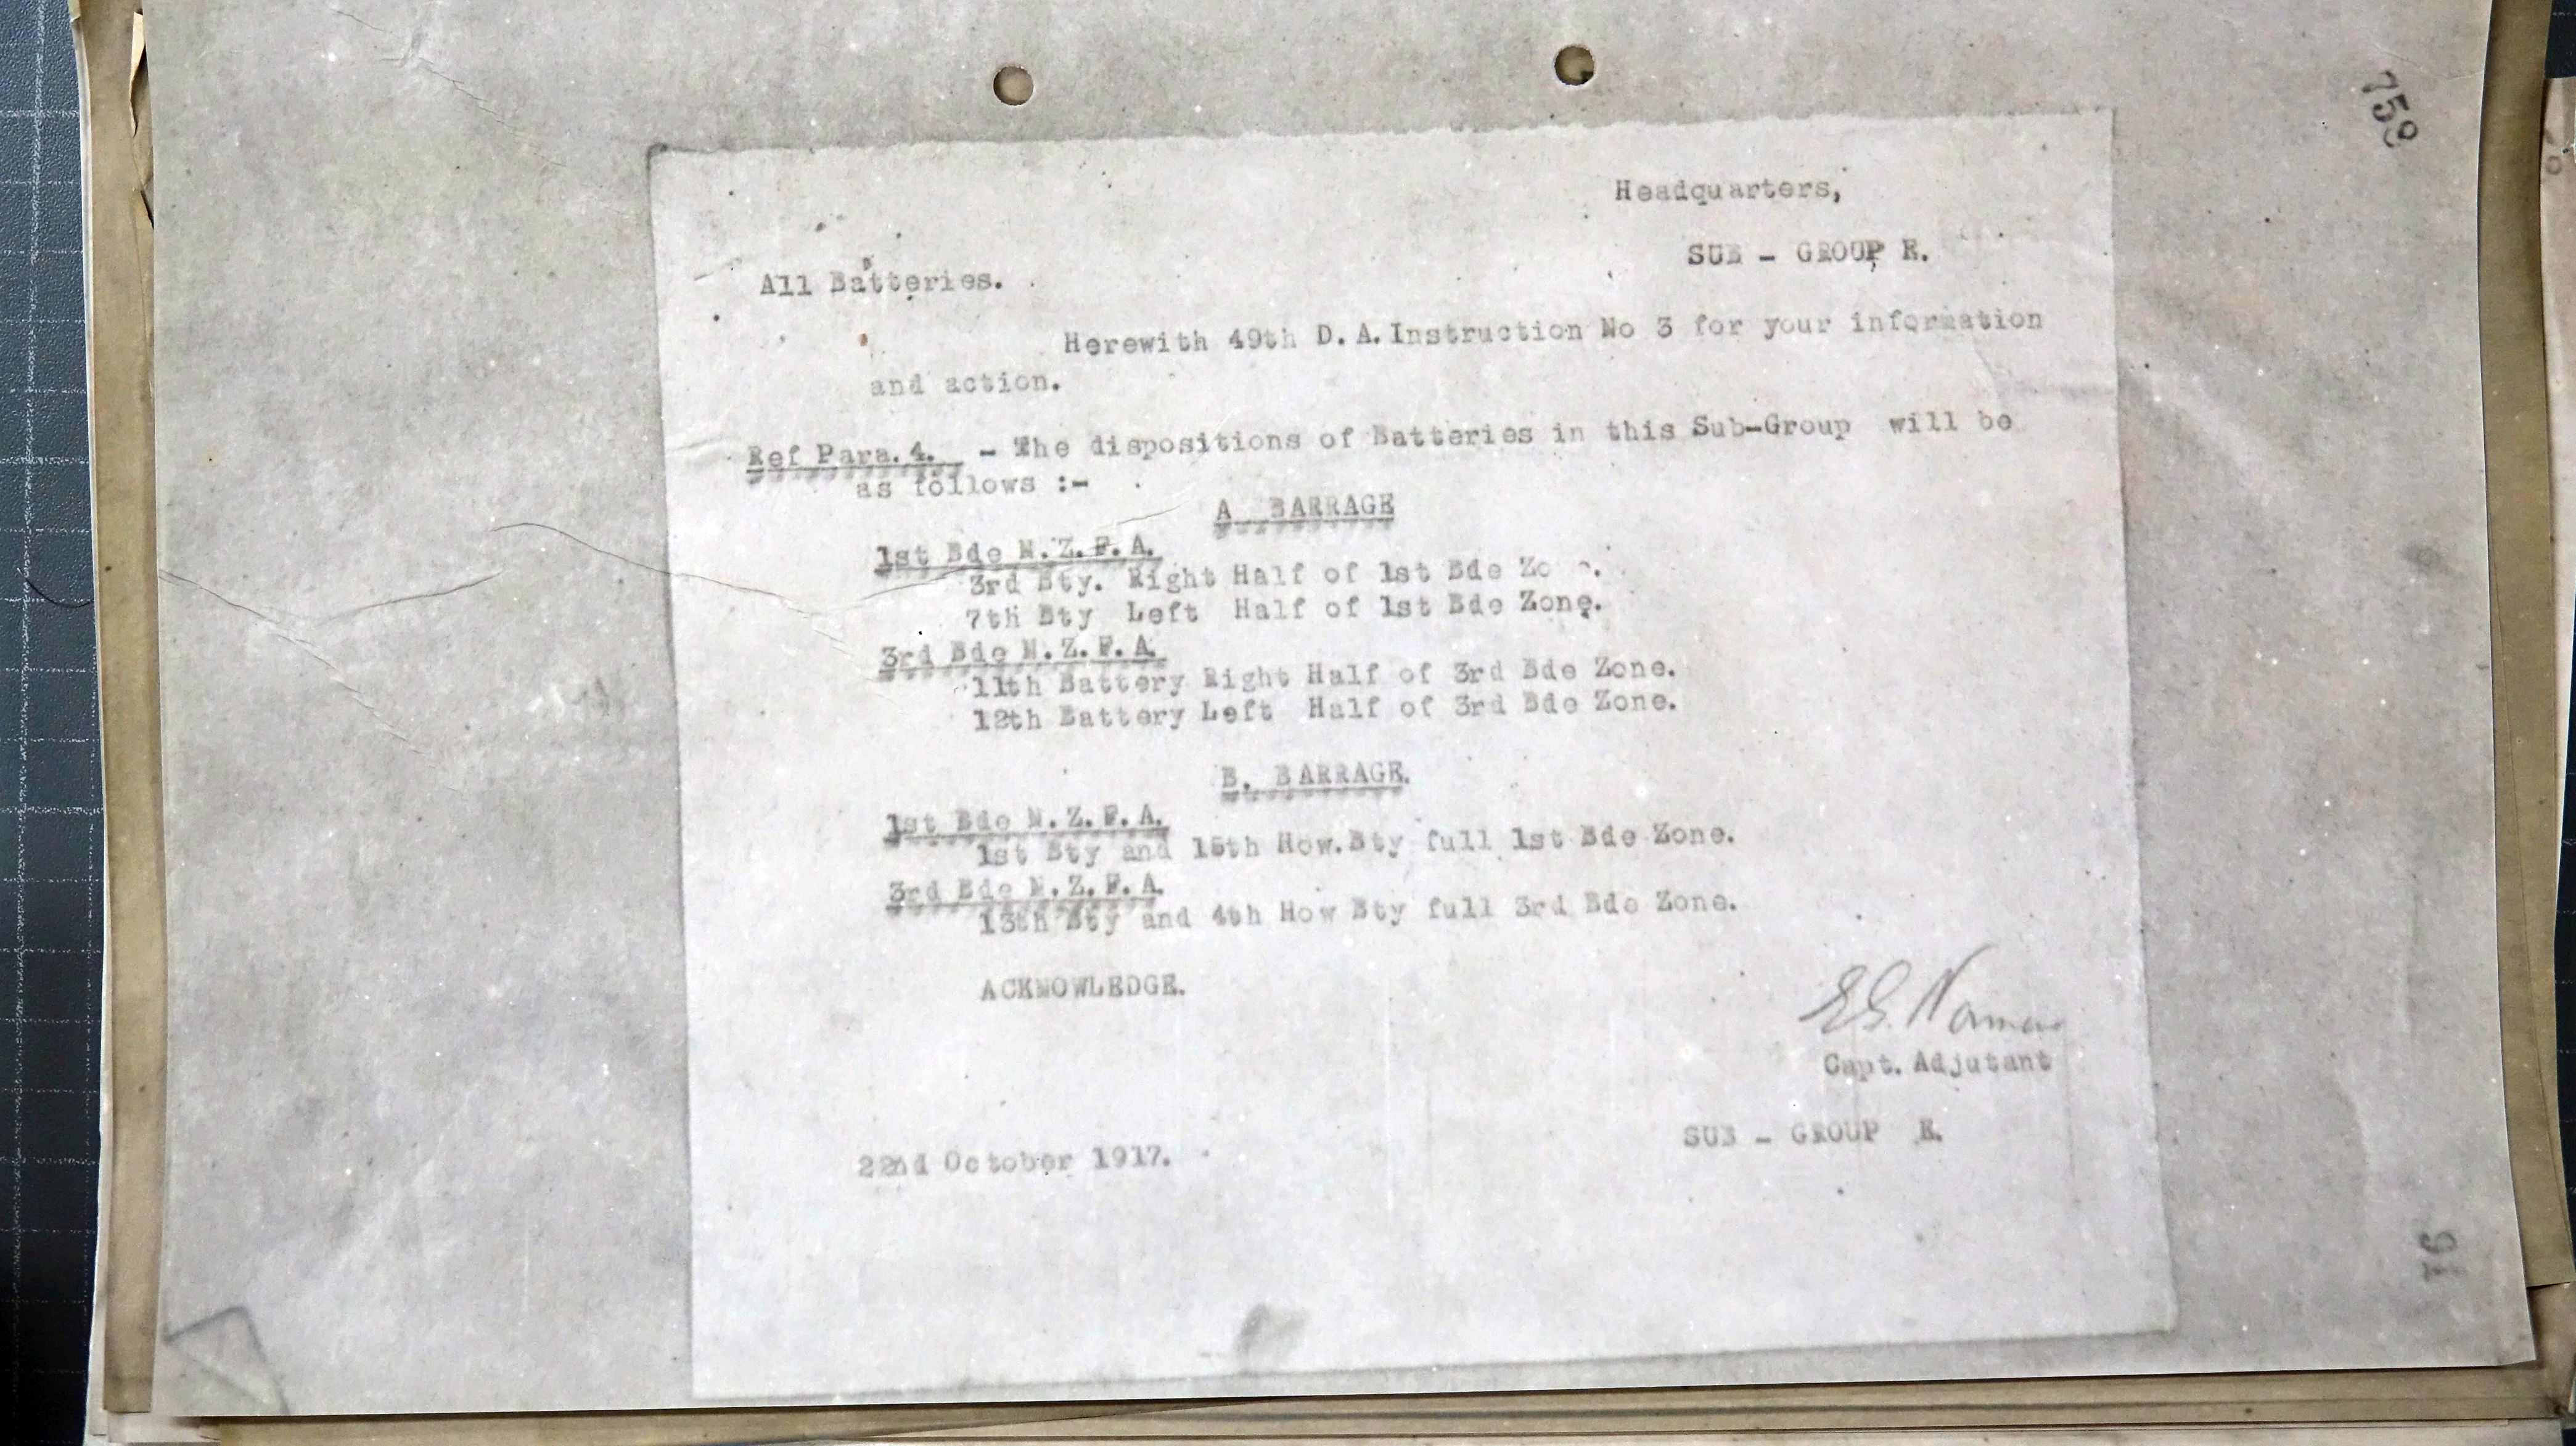 759
Headquarters,
SUB - GROUP E.
All Batteries.
Herewith 49th D.A.Instruction No 3 for your information
and action.
Ref Para.4. - The dispositions of Batteries in this Sub-Group will be
as follows :-
A BARRAGE
1st Bde N.Z.F.A.
3rd Bty. Right Half of 1st Bde Zo e.
7th Bty Left Half of 1st Bde Zone.
3rd Bde N.Z.F.A.
11th Battery Right Half of 3rd Bde Zone.
12th Battery Left Half of 3rd Bde Zone.
B. BARRAGE.
1st Bde N.Z.F.A.
1st Bty and 15th How.Bty full 1st Bde Zone.
3rd Bde N.Z.F.A.
13th Bty and 4th How Bty full 3rd Bde Zone.
ACKNOWLEDGE.
Capt. Adjutant
SUB - GROUP E.
22nd October 1917.